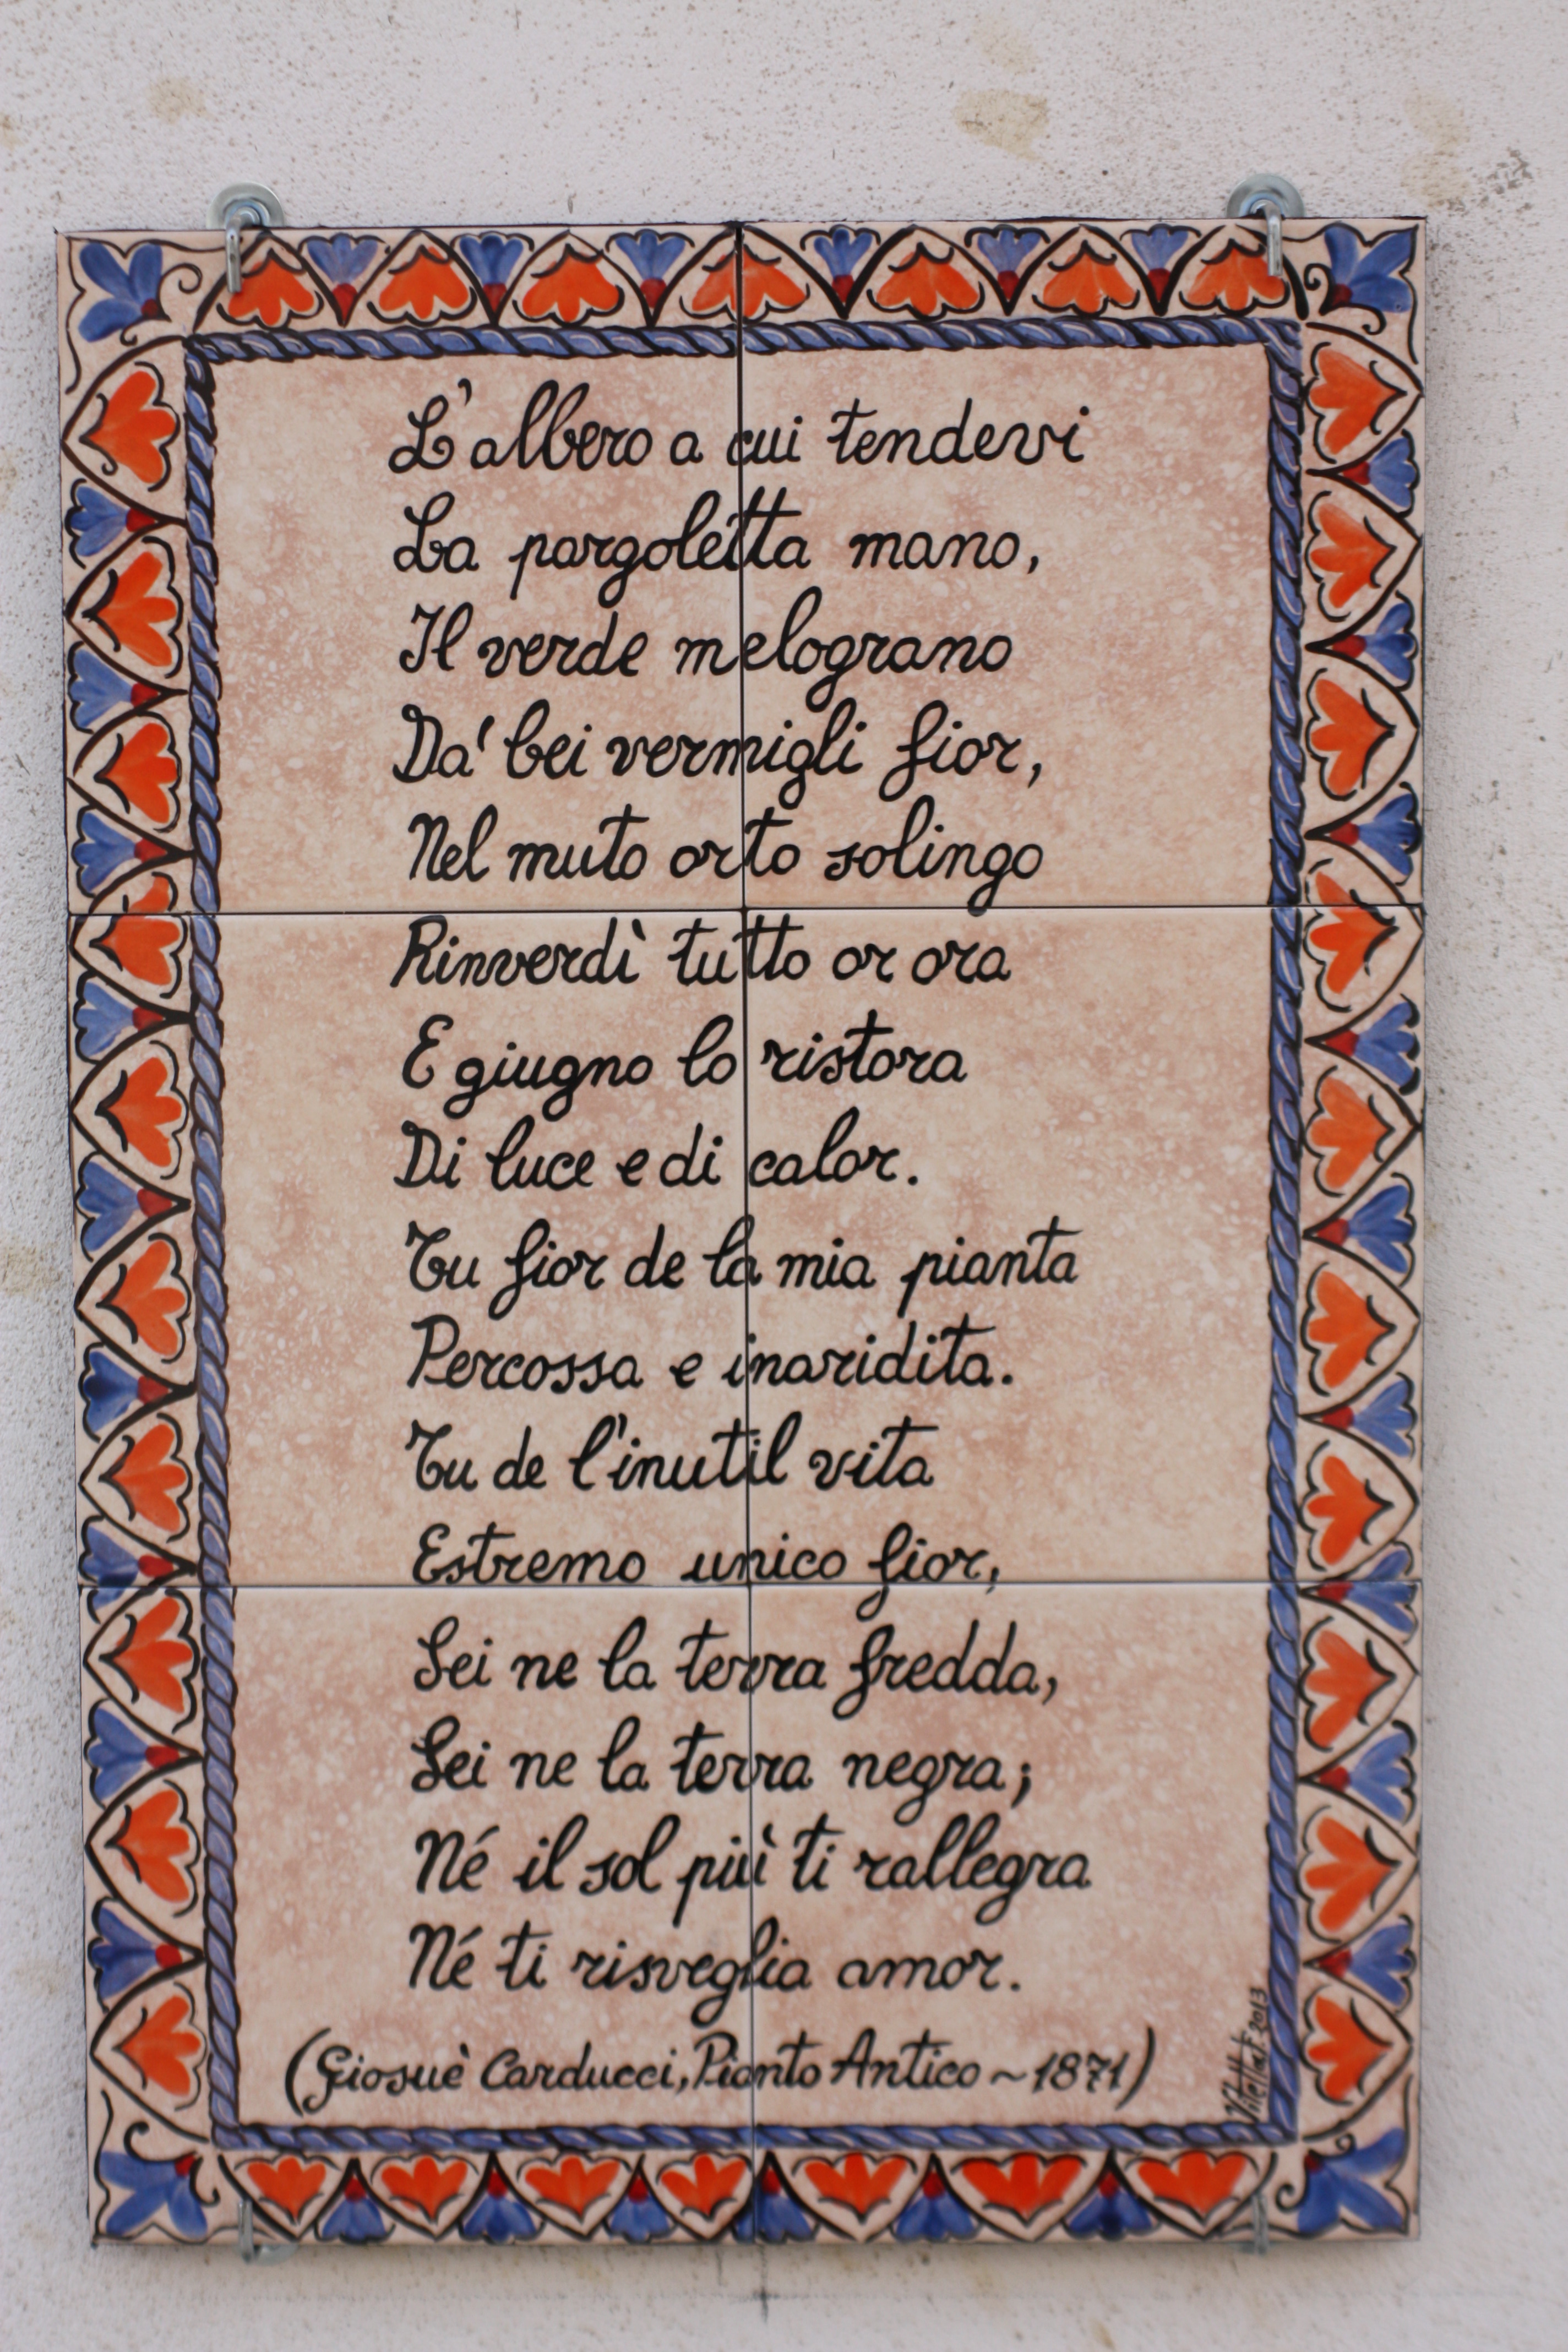 L'albero a cui tendevi
La pargoletta mano,
Il verde melograno
Da' bei vermigli fior,
Nel muto orto solingo
Rinverdì tutto or ora
E giugno lo ristora
Di luce e di calor.
Tu fior de la mia pianta
Percossa e inaridita.
Tu de l'inutil vita
Estremo unico fior,
Sei ne la terra fredda,
Sei ne la terra negra;
Né il sol più ti rallegra
Né ti risveglia amor.
(Giosuè Carducci, Pianto Antico ~ 1871)
2013